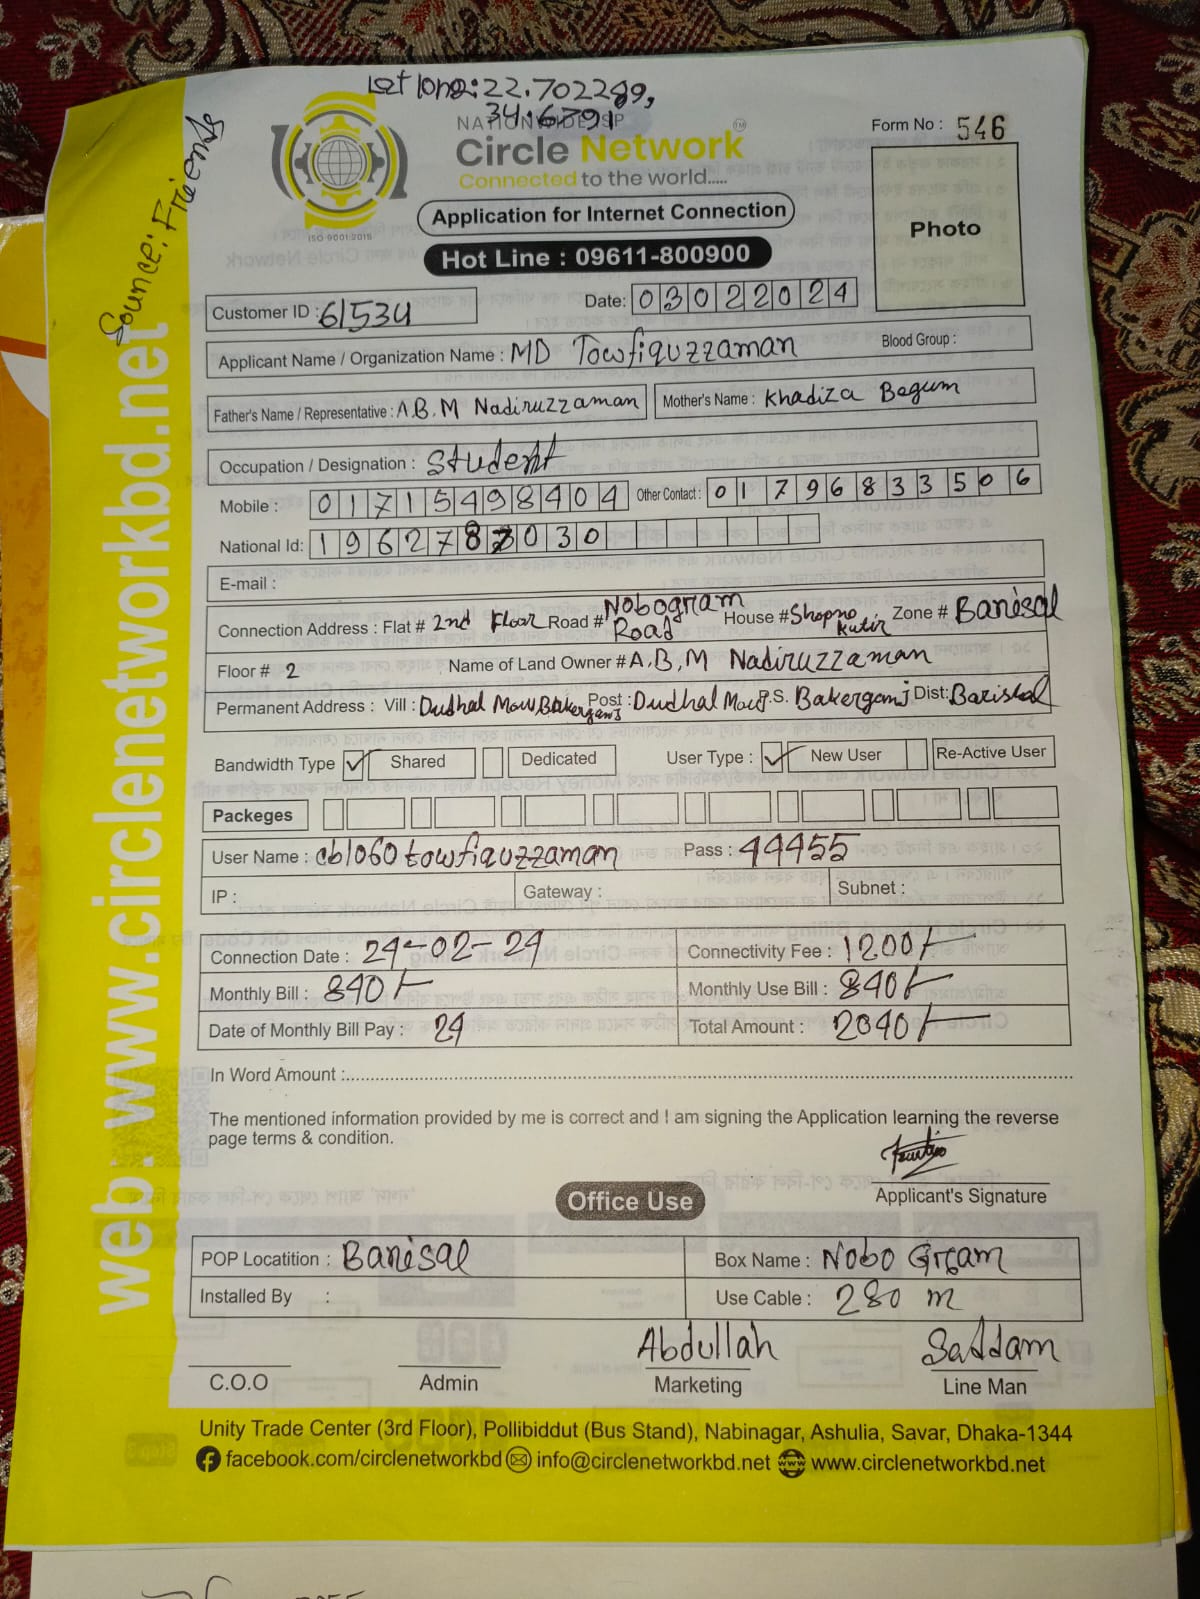 Lat long: 22.702289,
34.6791
Source: Friends
NATIONWIDE ISP
Circle Network
TM
Connected to the world.....
ISO 9001:2015
Form No : 546
Photo
Application for Internet Connection
Hot Line : 09611-800900
Customer ID : 61534
Date: 03022024
Applicant Name / Organization Name : MD Towfiquzzaman Blood Group :
Father's Name / Representative : A.B.M Nadiruzzaman Mother's Name : Khadiza Begum
Occupation / Designation : Student
Mobile : 01715498404 Other Contact : 01796833506
National Id: 1962787030
E-mail :
Connection Address : Flat # 2nd Floor Road # Nobogram Road House # Shopno Kutir Zone # Barisal
Floor # 2 Name of Land Owner # A.B.M Nadiruzzaman
Permanent Address : Vill : Dudhal Mow Bakerganj Post : Dudhal Mow P.S. Bakerganj Dist: Barishal
Bandwidth Type Shared Dedicated User Type : New User Re-Active User
Packeges
User Name : cb1060towfiquzzaman Pass : 44455
IP : Gateway : Subnet :
Connection Date : 24-02-24 Connectivity Fee : 1200/-
Monthly Bill : 840/- Monthly Use Bill : 840/-
Date of Monthly Bill Pay : 24 Total Amount : 2040/-
In Word Amount :
The mentioned information provided by me is correct and I am signing the Application learning the reverse
page terms & condition.
Applicant's Signature
Office Use
POP Locatition : Barisal Box Name : Nobo Gram
Installed By : Use Cable : 280 m
Abdullah Saddam
C.O.O Admin Marketing Line Man
Unity Trade Center (3rd Floor), Pollibiddut (Bus Stand), Nabinagar, Ashulia, Savar, Dhaka-1344
facebook.com/circlenetworkbd info@circlenetworkbd.net www.circlenetworkbd.net
web: www.circlenetworkbd.net